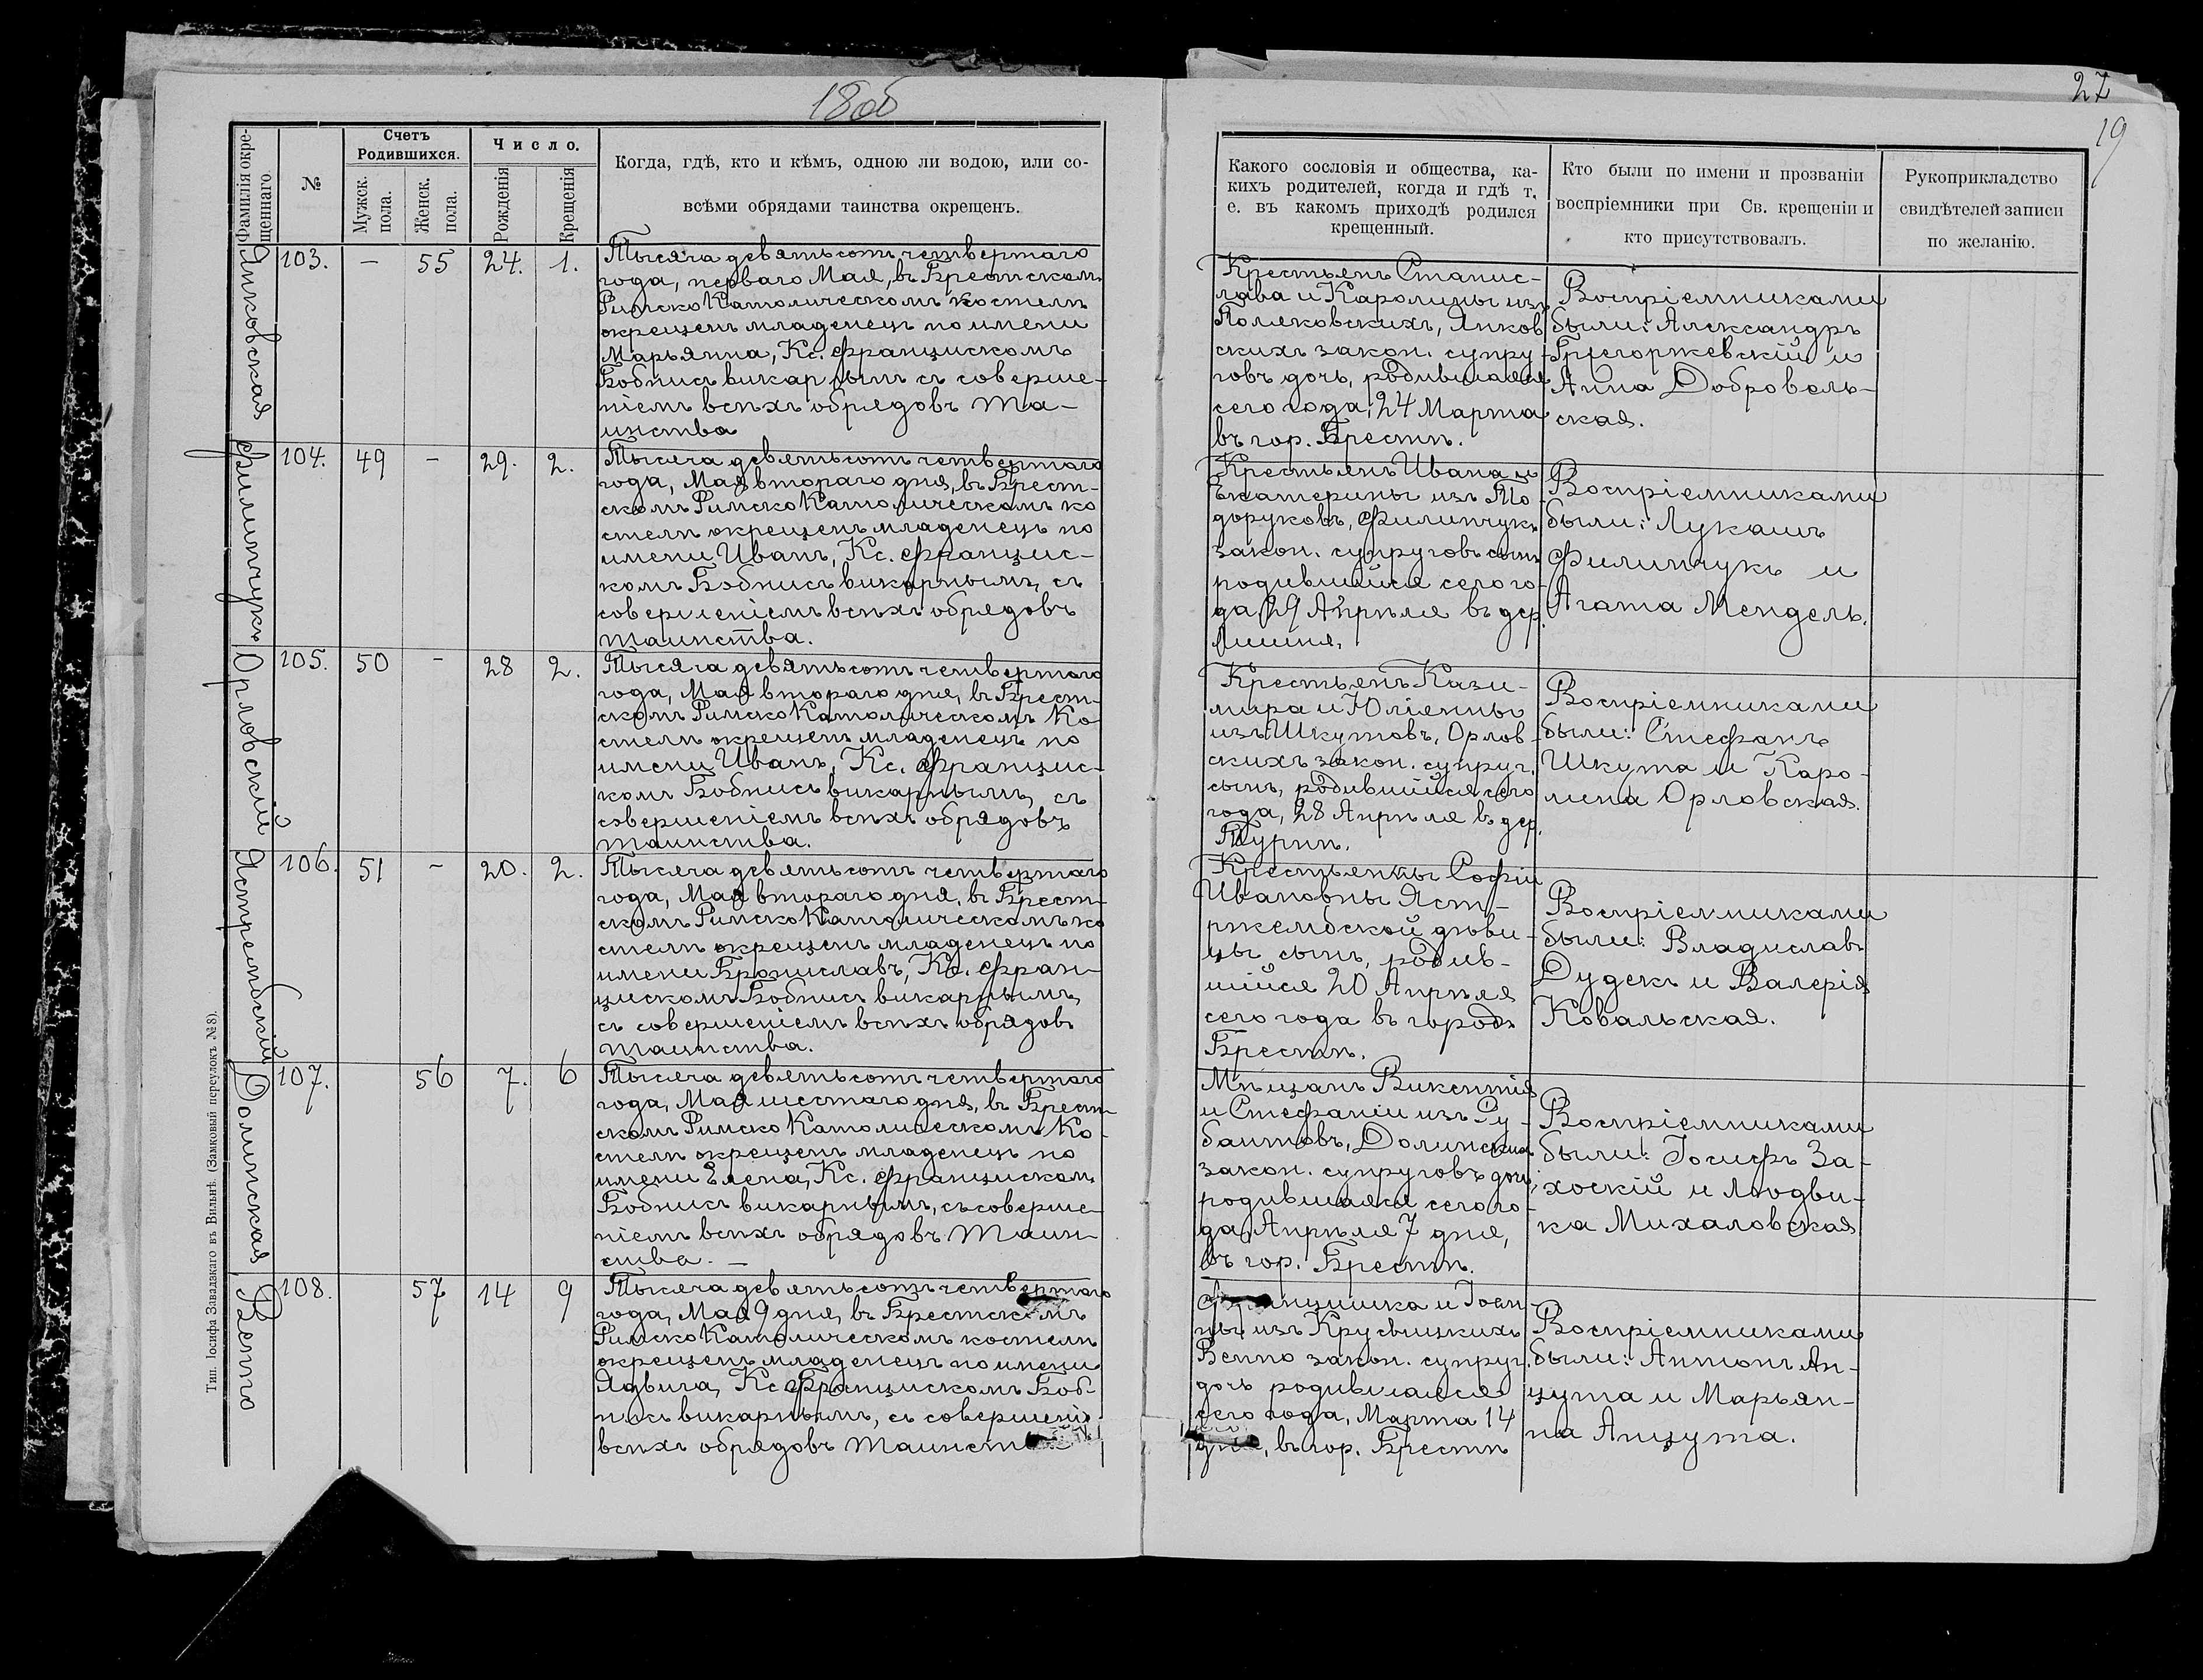 1806
27
19
Фамилія окре-
щеннаго.
№
Счетъ
Родившихся.
Мужск.
пола.
Женск.
пола.
Число.
Рожденія
Крещенія
Когда, гдѣ, кто и кѣмъ, одною ли водою, или со-
всѣми обрядами таинства окрещенъ.
Какого сословія и общества, ка-
кихъ родителей, когда и гдѣ т.
е. въ какомъ приходѣ родился
крещенный.
Кто были по имени и прозванію
воспріемники при Св. крещеніи и
кто присутствовалъ.
Рукоприкладство
свидѣтелей записи
по желанію.
Янковская
103. – 55 24. 1.
Тысяча девятьсотъ четвертаго
года, перваго Мая, въ Брестскомъ
Римско Католическомъ костелѣ
окрещенъ младенецъ по имени
Марьянна, Кс. Францискомъ
Бобнисъ викарнымъ съ соверше-
ніемъ всѣхъ обрядовъ Та-
инства
Крестьянъ Станис-
лава и Каролины изъ
Поляковскихъ, Янков
скихъ закон. супру-
говъ дочь, родившаяся
сего года, 24 Марта
въ гор. Брестѣ.
Воспріемниками
были: Александръ
Григоржевскій и
Анна Доброволь-
ская.
Филипчукъ
104. 49 – 29. 2.
Тысяча девятьсотъ четвертаго
года, Мая втораго дня, въ Брест-
скомъ Римско Католическомъ ко
стелѣ окрещенъ младенецъ по
имени Иванъ, Кс. Францис-
комъ Бобнисъ викарнымъ, съ
совершеніемъ всѣхъ обрядовъ
таинства.
Крестьянъ Ивана и
Екатерины изъ То-
доруковъ, Филипчукъ
закон. супруговъ сынъ
родившійся сего го-
да 29 Апрѣля въ дер.
Воспріемниками
были: Лукашъ
Филипчукъ и
Агата Мендель.
Орловскій
105. 50 – 28 2.
Тысяча девятьсотъ четвертаго
года, Мая втораго дня, въ Брест-
скомъ Римско Католическомъ Ко
стелѣ окрещенъ младенецъ по
имени Иванъ, Кс. Францис-
комъ Бобнисъ викарнымъ, съ
совершеніемъ всѣхъ обрядовъ
таинства.
Крестьянъ Кази-
мира и Юліянны
изъ Шкутовъ, Орлов-
скихъ закон. супруг.
сынъ, родившійся сего
года, 28 Апрѣля въ дер.
Воспріемниками
были: Стефанъ
Шкута и Каро-
лина Орловская.
Ястрембскій
106. 51 – 20. 2.
Тысяча девятьсотъ четвертаго
года, Мая втораго дня, въ Брест-
скомъ Римско Католическомъ ко
стелѣ окрещенъ младенецъ по
имени Брониславъ, Кс. Фран-
цискомъ Бобнисъ викарнымъ,
съ совершеніемъ всѣхъ обрядовъ
таинства.
Крестьянки Софіи
Ивановны Яст-
ржембской дѣви-
цы сынъ, родив-
шійся 20 Апрѣля
сего года въ городѣ
Брестѣ.
Воспріемниками
были: Владиславъ
Дудекъ и Валерія
Ковальская.
Долинская
107. 56 7. 6
Тысяча девятьсотъ четвертаго
года, Мая шестаго дня, въ Брест-
скомъ Римско Католическомъ Ко-
стелѣ окрещенъ младенецъ по
имени Елена, Кс. Францискомъ
Бобнисъ викарнымъ, съ соверше-
ніемъ всѣхъ обрядовъ Таин-
ства. –
Мѣщанъ Викентія
и Стефаніи изъ Ру-
баитовъ, Долинскихъ
закон. супруговъ дочь,
родившаяся сего го-
да Апрѣля 7 дня,
въ гор. Брестѣ.
Воспріемниками
были: Іосифъ За-
хоскій и Людви-
ка Михаловская
Венто
108. 57 14 9
Тысяча девятьсотъ четвертаго
года, Мая 9 дня, въ Брестскомъ
Римско Католическомъ костелѣ
окрещенъ младенецъ по имени
Ядвига, Кс. Францискомъ Боб-
нисъ викарнымъ, съ совершені
всѣхъ обрядовъ Таинст
Францишка и Іоан-
ны изъ Крусвицкихъ
Венто закон. супруг.
дочь родившаяся
сего года, Марта 14
дня, въ гор. Брестѣ
Воспріемниками
были: Антонъ Ан-
цута и Марьян-
на Анцута.
Тип. Іосифа Завадзкаго въ Вильнѣ. (Замковый переулокъ № 8).